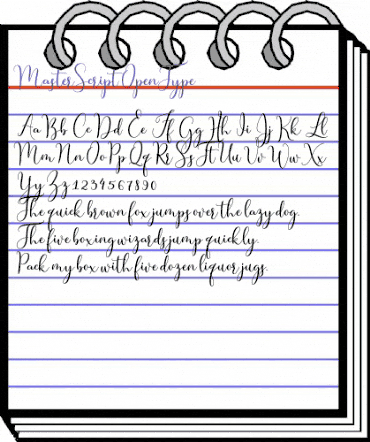 Master Script OpenType
Aa Bb Cc Dd Ee Ff Gg Hh Ii Jj Kk Ll
Mm Nn Oo Pp Qq Rr Ss Tt Uu Vv Ww Xx
Yy Zz 1234567890
The quick brown fox jumps over the lazy dog.
The five boxing wizards jump quickly.
Pack my box with five dozen liquor jugs.